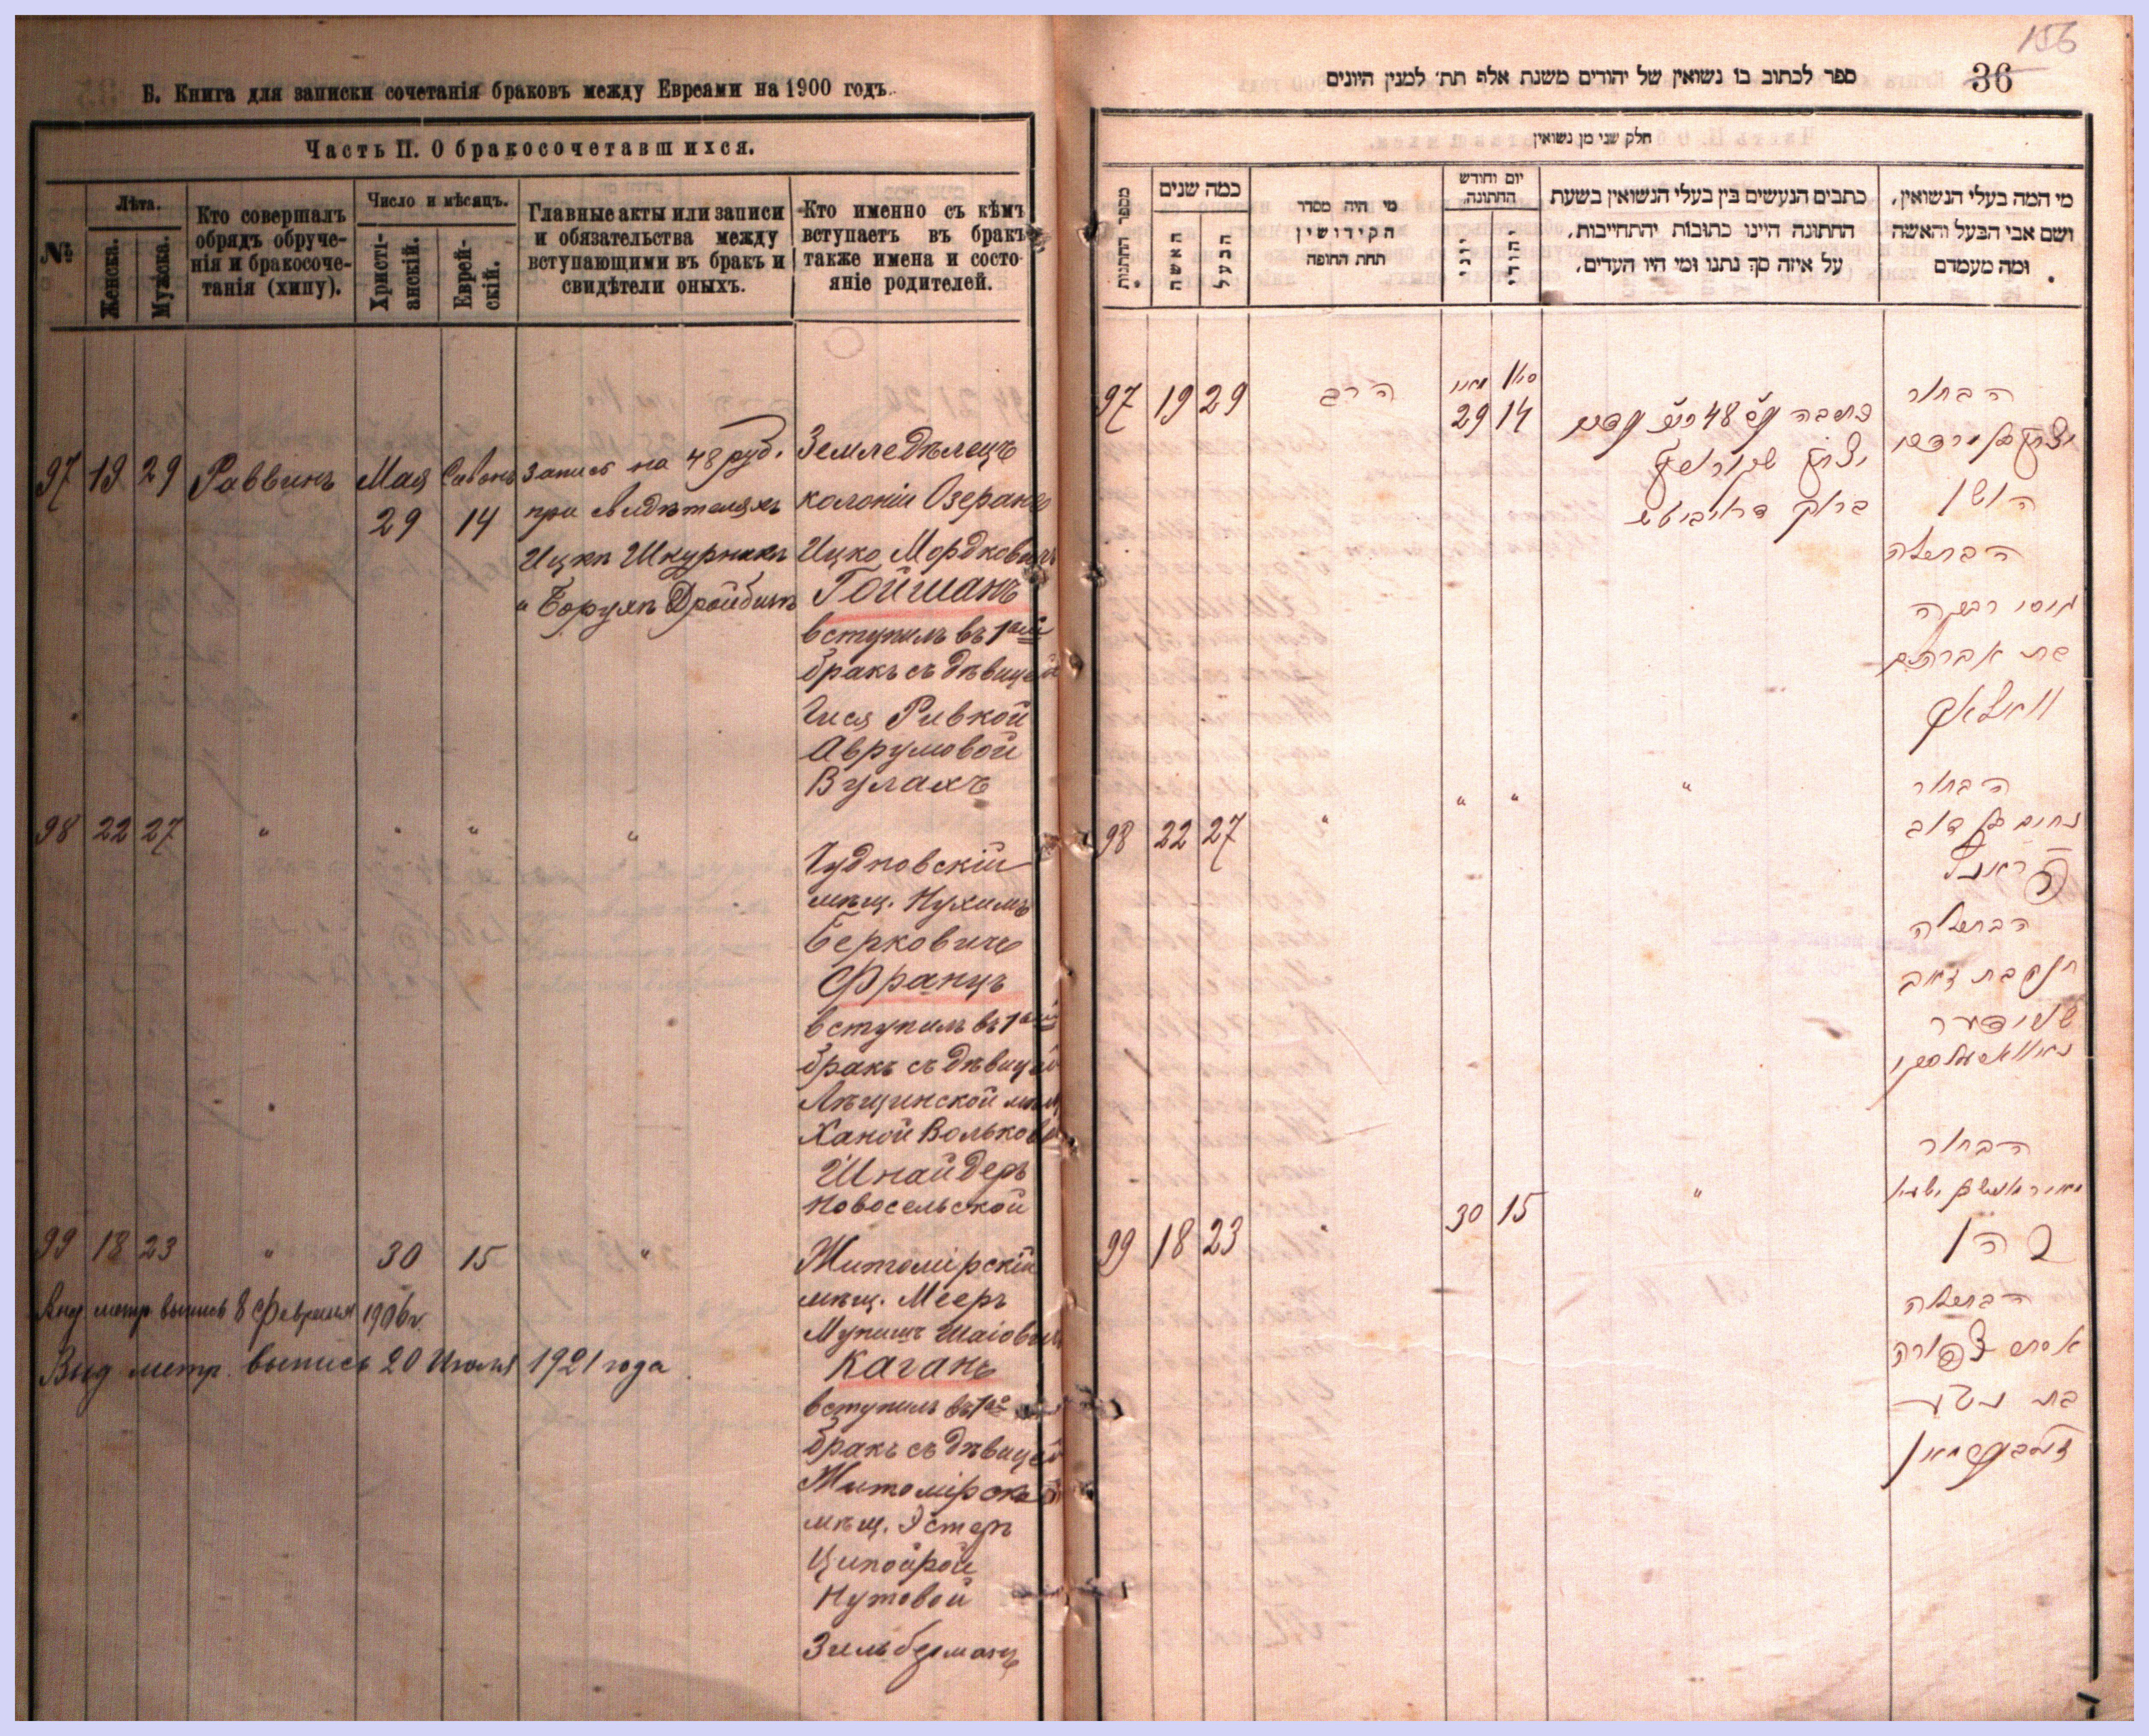 Б. Книга для записки сочетанія браковъ между Евреями на 1900 годъ.
Часть II. О бракосочетавшихся.
№
Лѣта.
Женска.
Мужска.
Кто совершалъ
обрядъ обруче-
нія и бракосоче-
танія (хипу).
Число и мѣсяцъ.
Христі-
анскій.
Еврей-
скій.
Главные акты или записи
и обязательства между
вступающими въ бракъ и
свидѣтели оныхъ.
Кто именно съ кѣмъ
вступаетъ въ бракъ
также имена и состо-
яніе родителей.
97 19 29 Раввинъ Мая Сивонъ
29 14
Запись на 48 руб.
при свидѣтеляхъ
Ицкѣ Шкурникъ
" Борухъ Дройбичъ
Земледѣлецъ
колоніи Озерянъ
Ицко Мордковичъ
Гойшанъ
вступилъ въ 1ый
бракъ съ дѣвицей
Ривкой
Аврумовой
Вулахъ
98 22 27 " " " "
Чудновскій
мѣщ. Нухимъ
Берковичъ
Францъ
вступилъ въ 1ый
бракъ съ дѣвицей
мѣщ
Ханой Вольковой
Шнайдеръ
Новосельской
99 18 23 " 30 15 "
Житомірскій
мѣщ. Мееръ
Шаіовичъ
Каганъ
вступилъ въ 1ый
бракъ съ дѣвицей
Житомірской
мѣщ. Эстеръ
Ципойрой
Нутовой
Зильберманъ
метр выпись 8 Февраля 1906 г.
Выд метр. выпись 20 Июля 1921 года
156
36
ספר לכתוב בו נשואין של יהודים משנת אלף תת׳ למנין היונים
חלק שני מן נשואין
מספר החתנות
כמה שנים
האשה
הבעל
מי היה מסדר
הקידושין
תחת החופה
יום וחודש
החתונה
יוני
יהודי
כתבים הנעשים בין בעלי הנשואין בשעת
החתונה היינו כתובות יהתחייבות,
על איזה סך נתנו ומי היו העדים,
מי המה בעלי הנשואין,
ושם אבי הבעל והאשה
ומה מעמדם
97 19 29 הרב
29 14
יצחק
ברוך
הבחור
יצחק בן מרדכי
הבתולה
רבקה
בת אברהם
וואלאך
98 22 27 " " " "
הבחור
נחום בן דוב
הבתולה
חנה בת זאב
שניידער
99 18 23 " 30 15 "
הבחור
כהן
הבתולה
אסתר צפורה
בת נטע
זילבערמאן